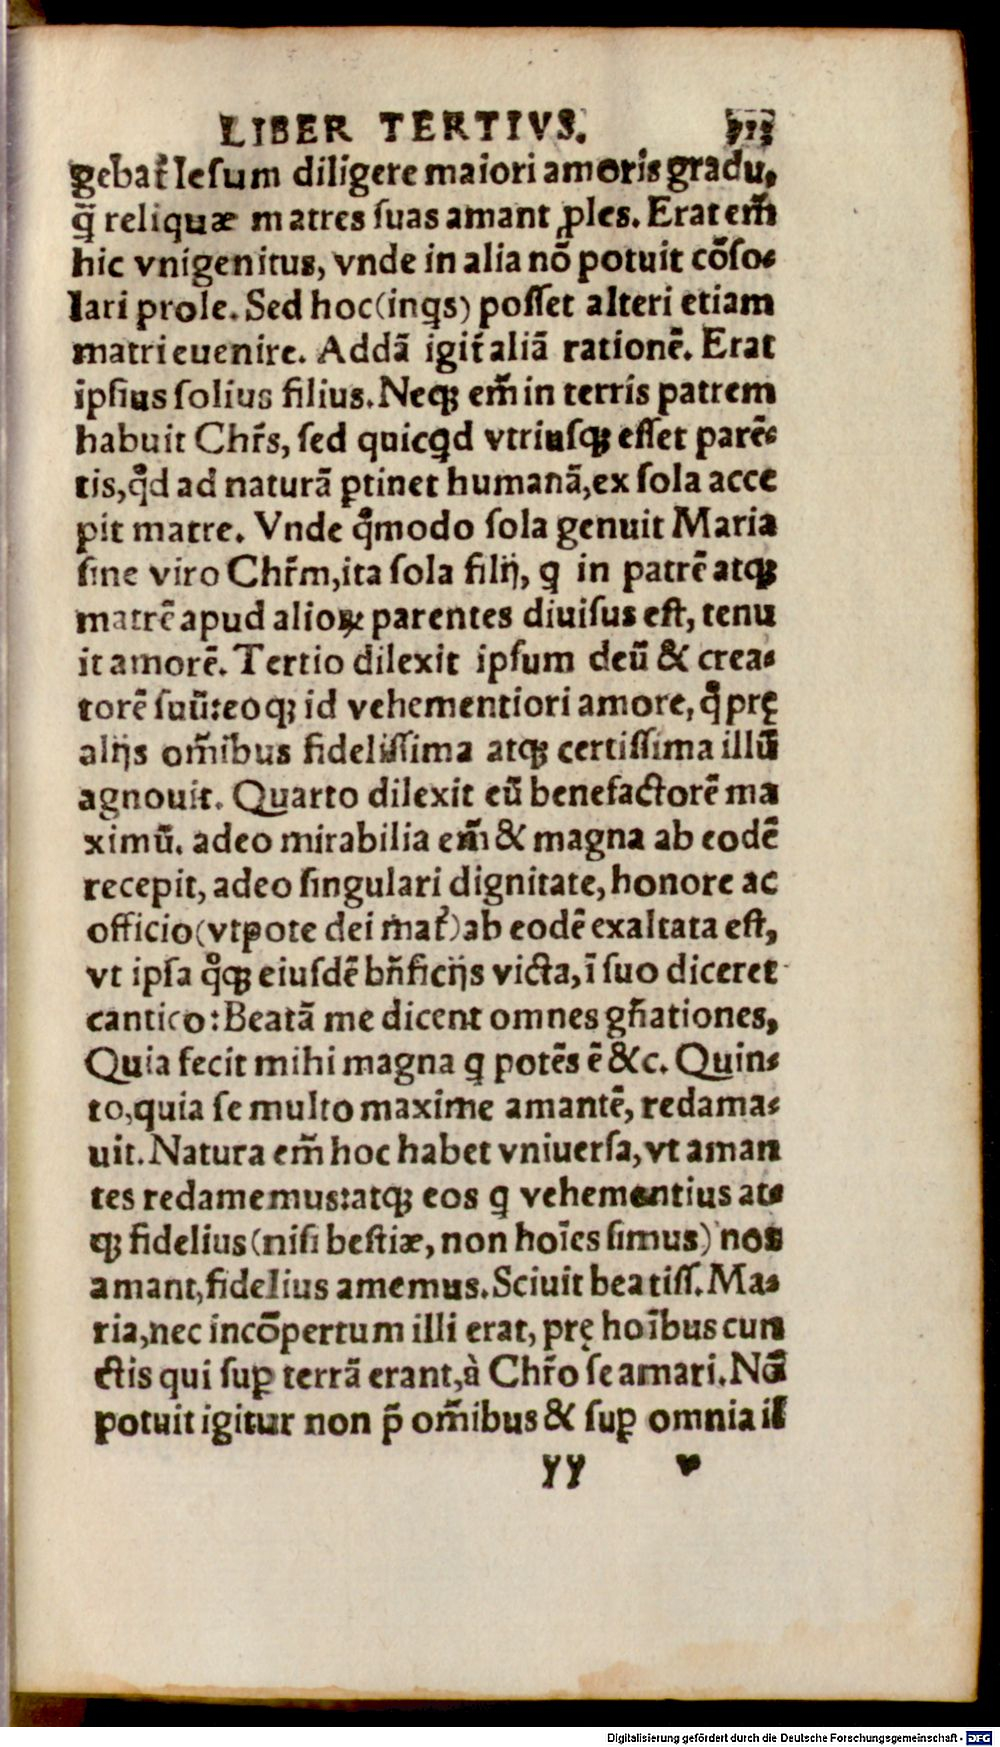 LIBER TERTIVS.
gebat᷑ Ieſum diligere maiori amoris gradu,
q̃ reliquæ matres ſuas amant ꝓles. Erat em̃
hic vnigenitus, vnde in alia nõ potuit cõſo-
lari prole. Sed hoc (inꝗs) poſſet alteri etiam
matri euenire. Addã igit᷑ aliã rationẽ. Erat
ipſius ſolius filius. Neqꝫ em̃ in terris patrem
habuit Chr̃s, ſed quicꝗd vtriuſqꝫ eſſet parẽ-
tis, qd̓ ad naturã ꝑtinet humanã, ex ſola acce
pit matre. Vnde qͦmodo ſola genuit Maria
ſine viro Chr̃m, ita ſola filij, ꝗ in patrẽ atqꝫ
matrẽ apud alioꝝ parentes diuiſus eſt, tenu
it amorẽ. Tertio dilexit ipſum deũ & crea-
torẽ ſuũ: eoqꝫ id vehementiori amore, qͦ prę
alijs om̃ibus fideliſſima atqꝫ certiſſima illũ
agnouit. Quarto dilexit eũ benefactorẽ ma
ximũ. adeo mirabilia em̃ & magna ab eodẽ
recepit, adeo ſingulari dignitate, honore ac
officio (vtpote dei mat᷑) ab eodẽ exaltata eſt,
vt ipſa qͦqꝫ eiuſdẽ bñficijs victa, ĩ ſuo diceret
cantico: Beatã me dicent omnes gñationes,
Quia fecit mihi magna ꝗ potẽs ẽ &c. Quin-
to, quia ſe multo maxime amantẽ, redama-
uit. Natura em̃ hoc habet vniuerſa, vt aman
tes redamemus: atqꝫ eos ꝗ vehementius at-
qꝫ fidelius (niſi beſtiæ, non hoĩes ſimus) nos
amant, fidelius amemus. Sciuit beatiſſ. Ma-
ria, nec incõpertum illi erat, prę hoĩbus cun
ctis qui ſuꝑ terrã erant, à Chr̃o ſe amari. Nõ
potuit igitur non p̃ om̃ibus & ſuꝑ omnia il
yy
Digitalisierung gefördert durch die Deutsche Forschungsgemeinschaft - DFG